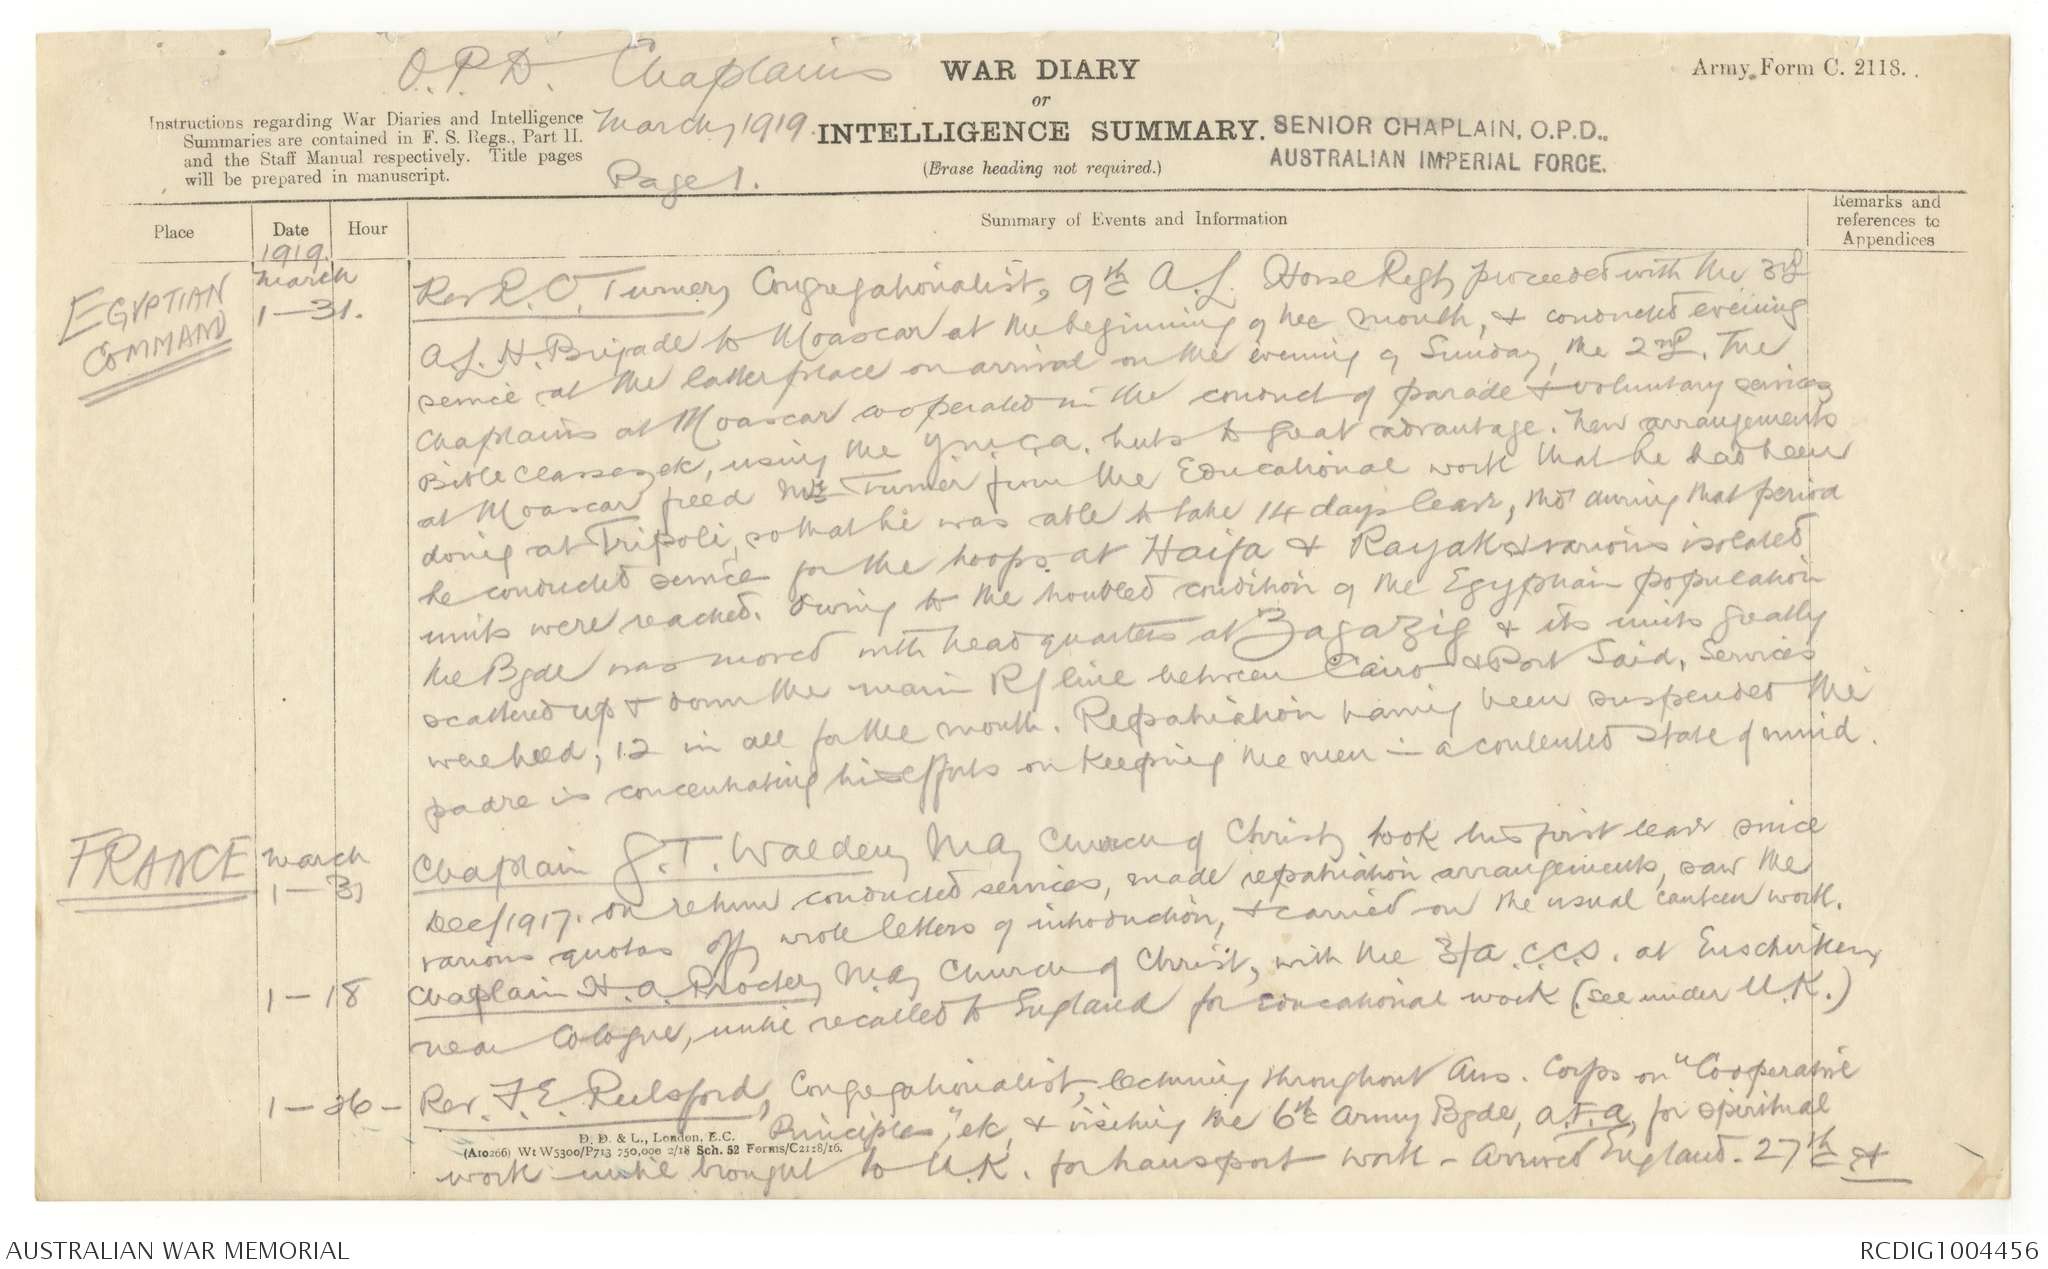 O.P.D. Chaplains
March, 1919.
Page 1.
WAR DIARY
or
INTELLIGENCE SUMMARY.
(Erase heading not required.)
Army Form C. 2118.
Instructions regarding War Diaries and Intelligence
Summaries are contained in F. S. Regs., Part II.
and the Staff Manual respectively. Title pages
will be prepared in manuscript.
SENIOR CHAPLAIN, O.P.D.,
AUSTRALIAN IMPERIAL FORCE.
Place
Date
Hour
Summary of Events and Information
Remarks and
references to
Appendices
1919.
EGYPTIAN
COMMAND
March
1 - 31.
Rev R. O. Turner, Congregationalist, 9th A.L. Horse Regt, proceeded with the 3rd
A.L.H. Brigade to Moascar at the beginning of the month, & conducted evening
service at the latter place on arrival on the evening of Sunday, the 2nd. The
Chaplains at Moascar cooperated in the conduct of parade & voluntary services
Bible Classes, etc, using the Y.M.C.A. huts to great advantage. New arrangements
at Moascar freed Mr Turner from the Educational work that he had been
doing at Tripoli, so that he was able to take 14 days leave, tho' during that period
he conducted service for the troops at Haifa & Rayak & various isolated
units were reached. Owing to the troubled condition of the Egyptian population
the Bgde was moved with headquarters at Zagazig & its units greatly
scattered up & down the main Ry line between Cairo & Port Said, Services
were held, 12 in all for the month. Repatriation having been suspended the
padre is concentrating his efforts on keeping the men in a contented state of mind.
FRANCE
March
1 - 31
Chaplain G. T. Walden, M.A., Church of Christ, took his first leave since
Dec/1917. On return conducted services, made repatriation arrangements, saw the
various quotas off, wrote letters of introduction, & carried on the usual canteen work.
1 - 18
Chaplain H. A. Procter, M.A., Church of Christ, with the 3/A.C.C.S. at Euschirken,
near Cologne, until recalled to England for educational work (see under U.K.)
1 - 26 -
Rev. F. E. Pulsford, Congregationalist, lecturing throughout Aus. Corps on "Cooperative
Principles," etc, & visiting the 6th Army Bgde, A.F.A, for spiritual
work until brought to U.K. for transport work - Arrived England. 27th
D. D. & L., London, E.C.
(A10266) Wt W5300/P713 750,000 2/18 Sch. 52 Forms/C2118/16.
AUSTRALIAN WAR MEMORIAL
RCDIG1004456